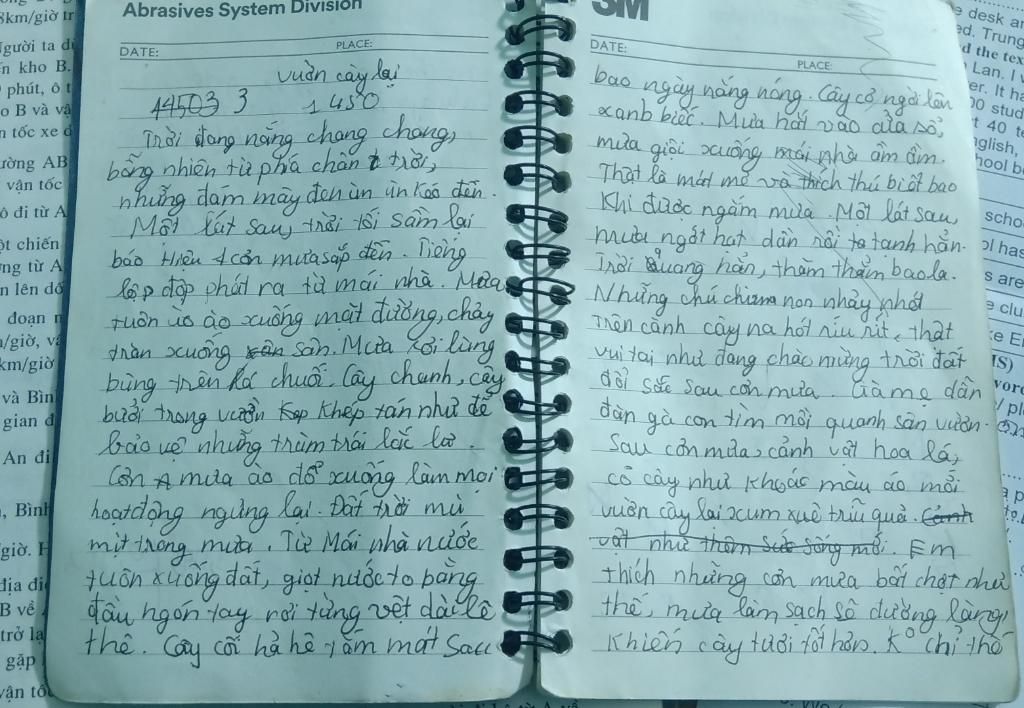 Abrasives System Division
DATE: PLACE:
vườn cây lại
14503 3 1450
Trời đang nắng chang chang,
bỗng nhiên từ phía chân trời,
những đám mây đen ùn ùn kéo đến.
Một lát sau, trời tối sầm lại
báo hiệu cơn mưa sắp đến. Tiếng
lộp độp phát ra từ mái nhà. Mưa
tuôn ào ào xuống mặt đường, chảy
tràn xuống sân. Mưa rơi lùng
bùng trên lá chuối. Cây chanh, cây
bưởi trong vườn khép tán như để
bảo vệ những trùm trái lúc lỉu.
Cơn mưa ào đổ xuống làm mọi
hoạt động ngừng lại. Đất trời mù
mịt trong mưa. Từ Mái nhà nước
tuôn xuống đất, giọt nước to bằng
đầu ngón tay rơi từng vệt dài lê
thê. Cây cối hả hê tắm mát sau
3M
DATE: PLACE:
bao ngày nắng nóng. Cây cỏ ngời lên
xanh biếc. Mưa hắt vào cửa sổ,
mưa giội xuống mái nhà ầm ầm.
Thật là mát mẻ và thích thú biết bao
khi được ngắm mưa. Một lát sau,
mưa ngớt hạt dần rồi tạnh hẳn.
Trời quang hẳn, thăm thẳm bao la.
Những chú chim non nhảy nhót
trên cành cây na hót ríu rít, thật
vui tai như đang chác mừng trời đất
đổi sắc sau cơn mưa. Gà mẹ dẫn
đàn gà con tìm mồi quanh sân vườn.
Sau cơn mưa, cảnh vật hoa lá,
cỏ cây như khoác màu áo mới
vườn cây lại xum xuê trĩu quả. Cảnh
vật như thêm sức sống mới. Em
thích những cơn mưa bất chợt như
thế, mưa làm sạch sẽ đường làng,
khiến cây tươi tốt hơn. Kº chỉ thế